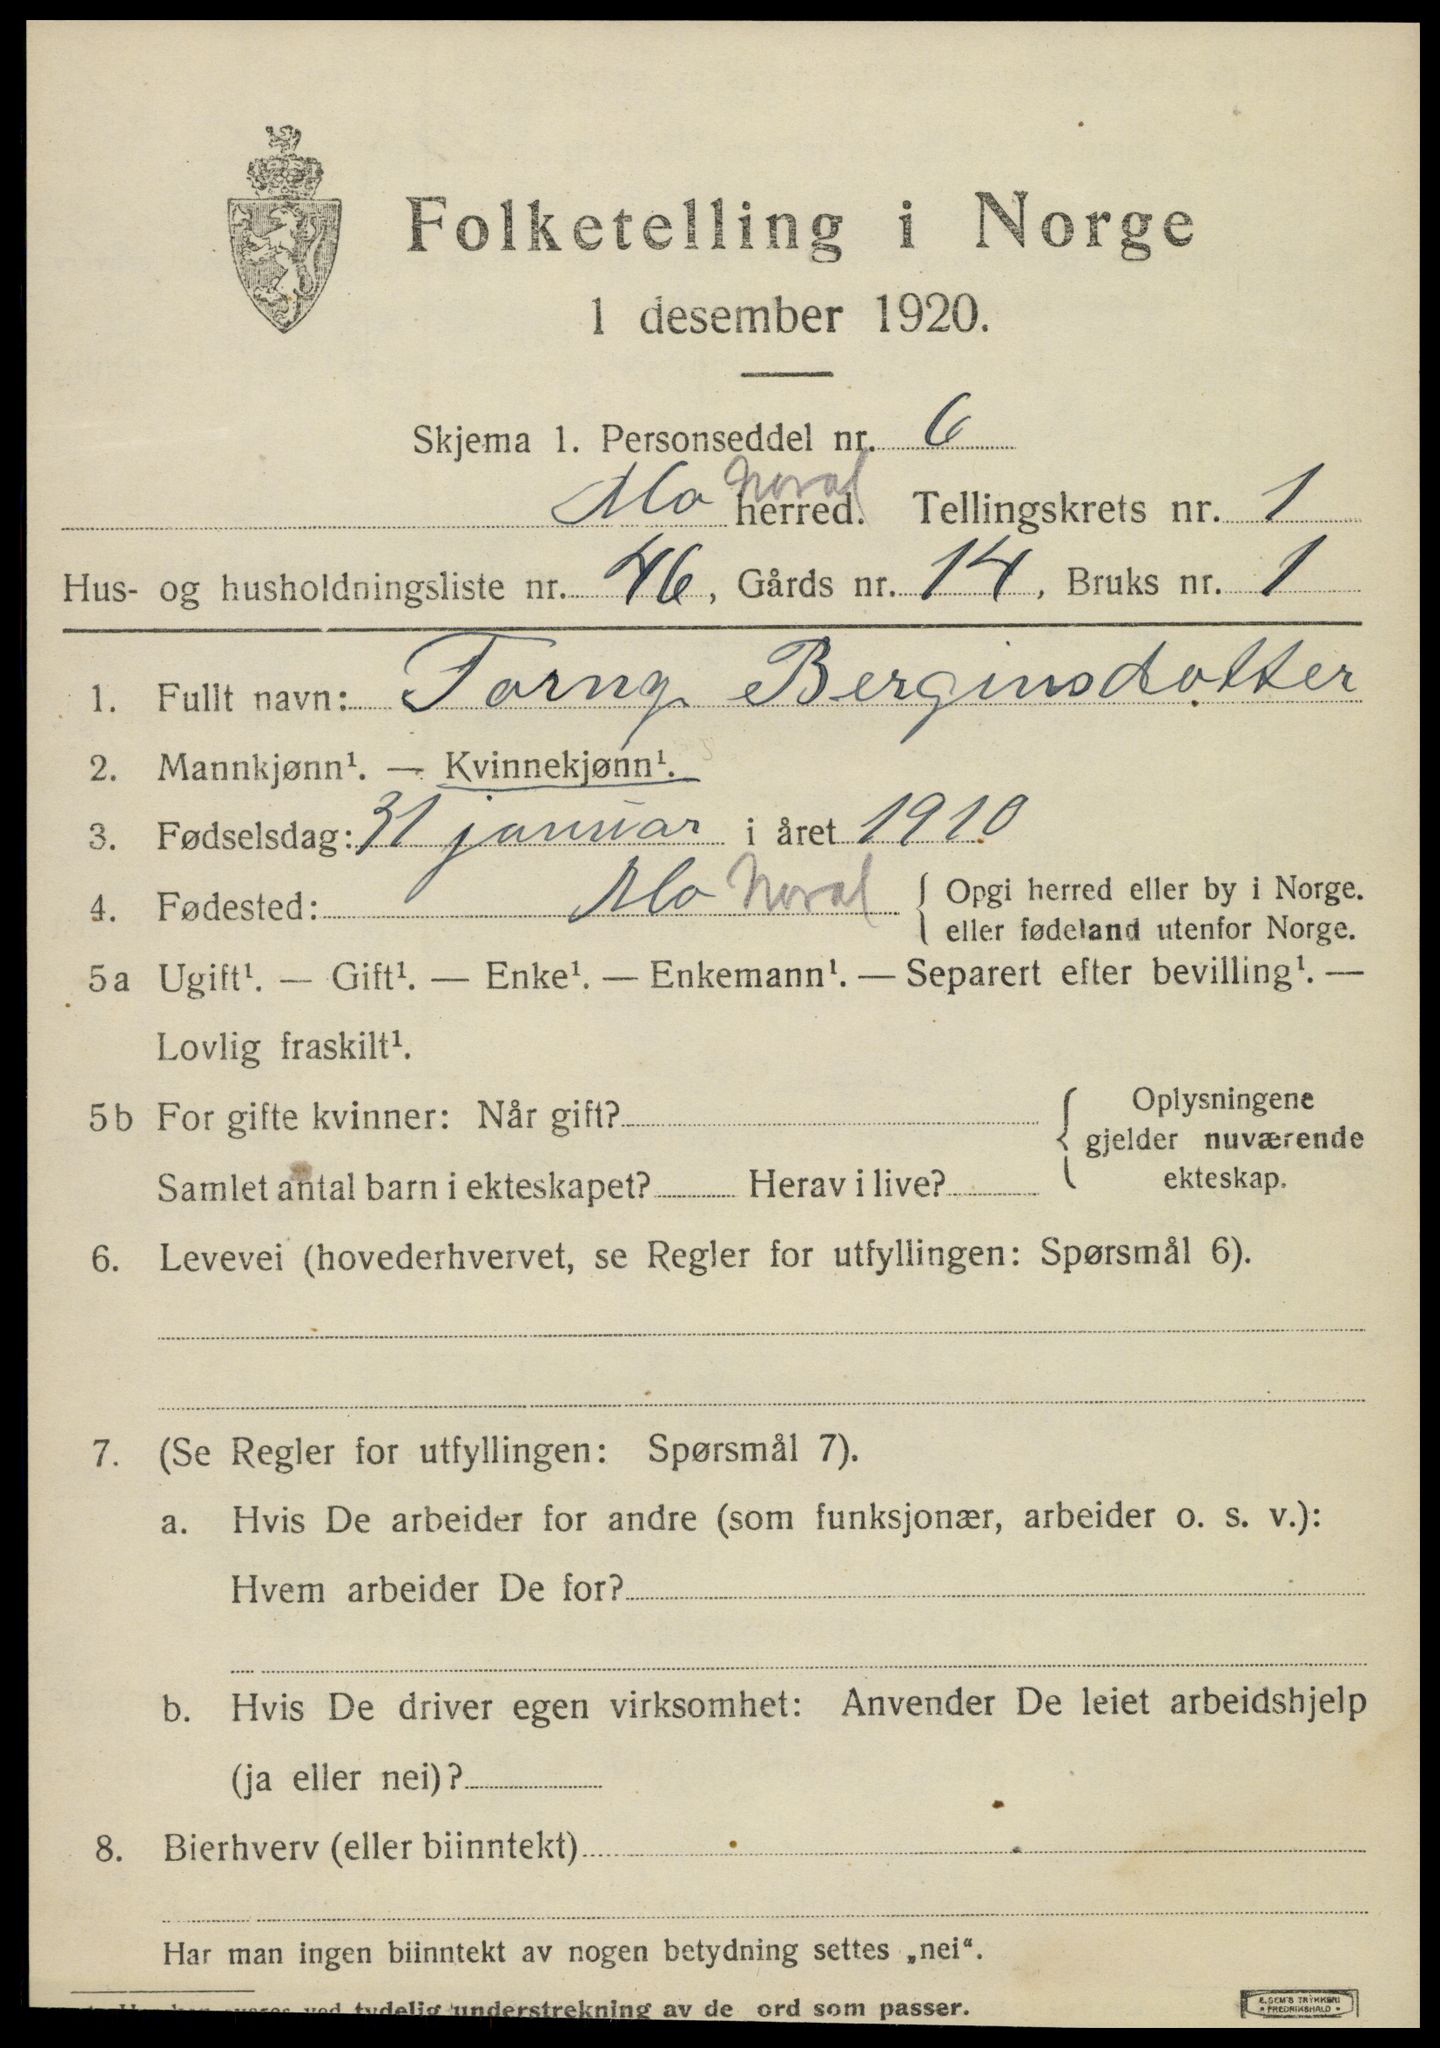 Folketelling i Norge
1 desember 1920.
Skjema 1. Personseddel nr. 6
Mo herred. Noral Tellingskrets nr. 1
Hus- og husholdningsliste nr. 46, Gårds nr. 14, Bruks nr. 1
1. Fullt navn: Torny Berginsdotter
2. Mannkjønn¹. — Kvinnekjønn¹.
3. Fødselsdag: 31 januar i året 1910
4. Fødested: Mo Noral { Opgi herred eller by i Norge.
eller fødeland utenfor Norge.
5a Ugift¹. — Gift¹. — Enke¹. — Enkemann¹. — Separert efter bevilling¹. —
Lovlig fraskilt¹.
5b For gifte kvinner: Når gift? { Oplysningene
gjelder nuværende
ekteskap.
Samlet antal barn i ekteskapet? Herav i live?
6. Levevei (hovederhvervet, se Regler for utfyllingen: Spørsmål 6).
7. (Se Regler for utfyllingen: Spørsmål 7).
a. Hvis De arbeider for andre (som funksjonær, arbeider o. s. v.):
Hvem arbeider De for?
b. Hvis De driver egen virksomhet: Anvender De leiet arbeidshjelp
(ja eller nei)?
8. Bierhverv (eller biinntekt)
Har man ingen biinntekt av nogen betydning settes „nei“.
ved tydelig understrekning av de ord som passer.
E. SEM'S TRYKKERI
FREDRIKSHALD